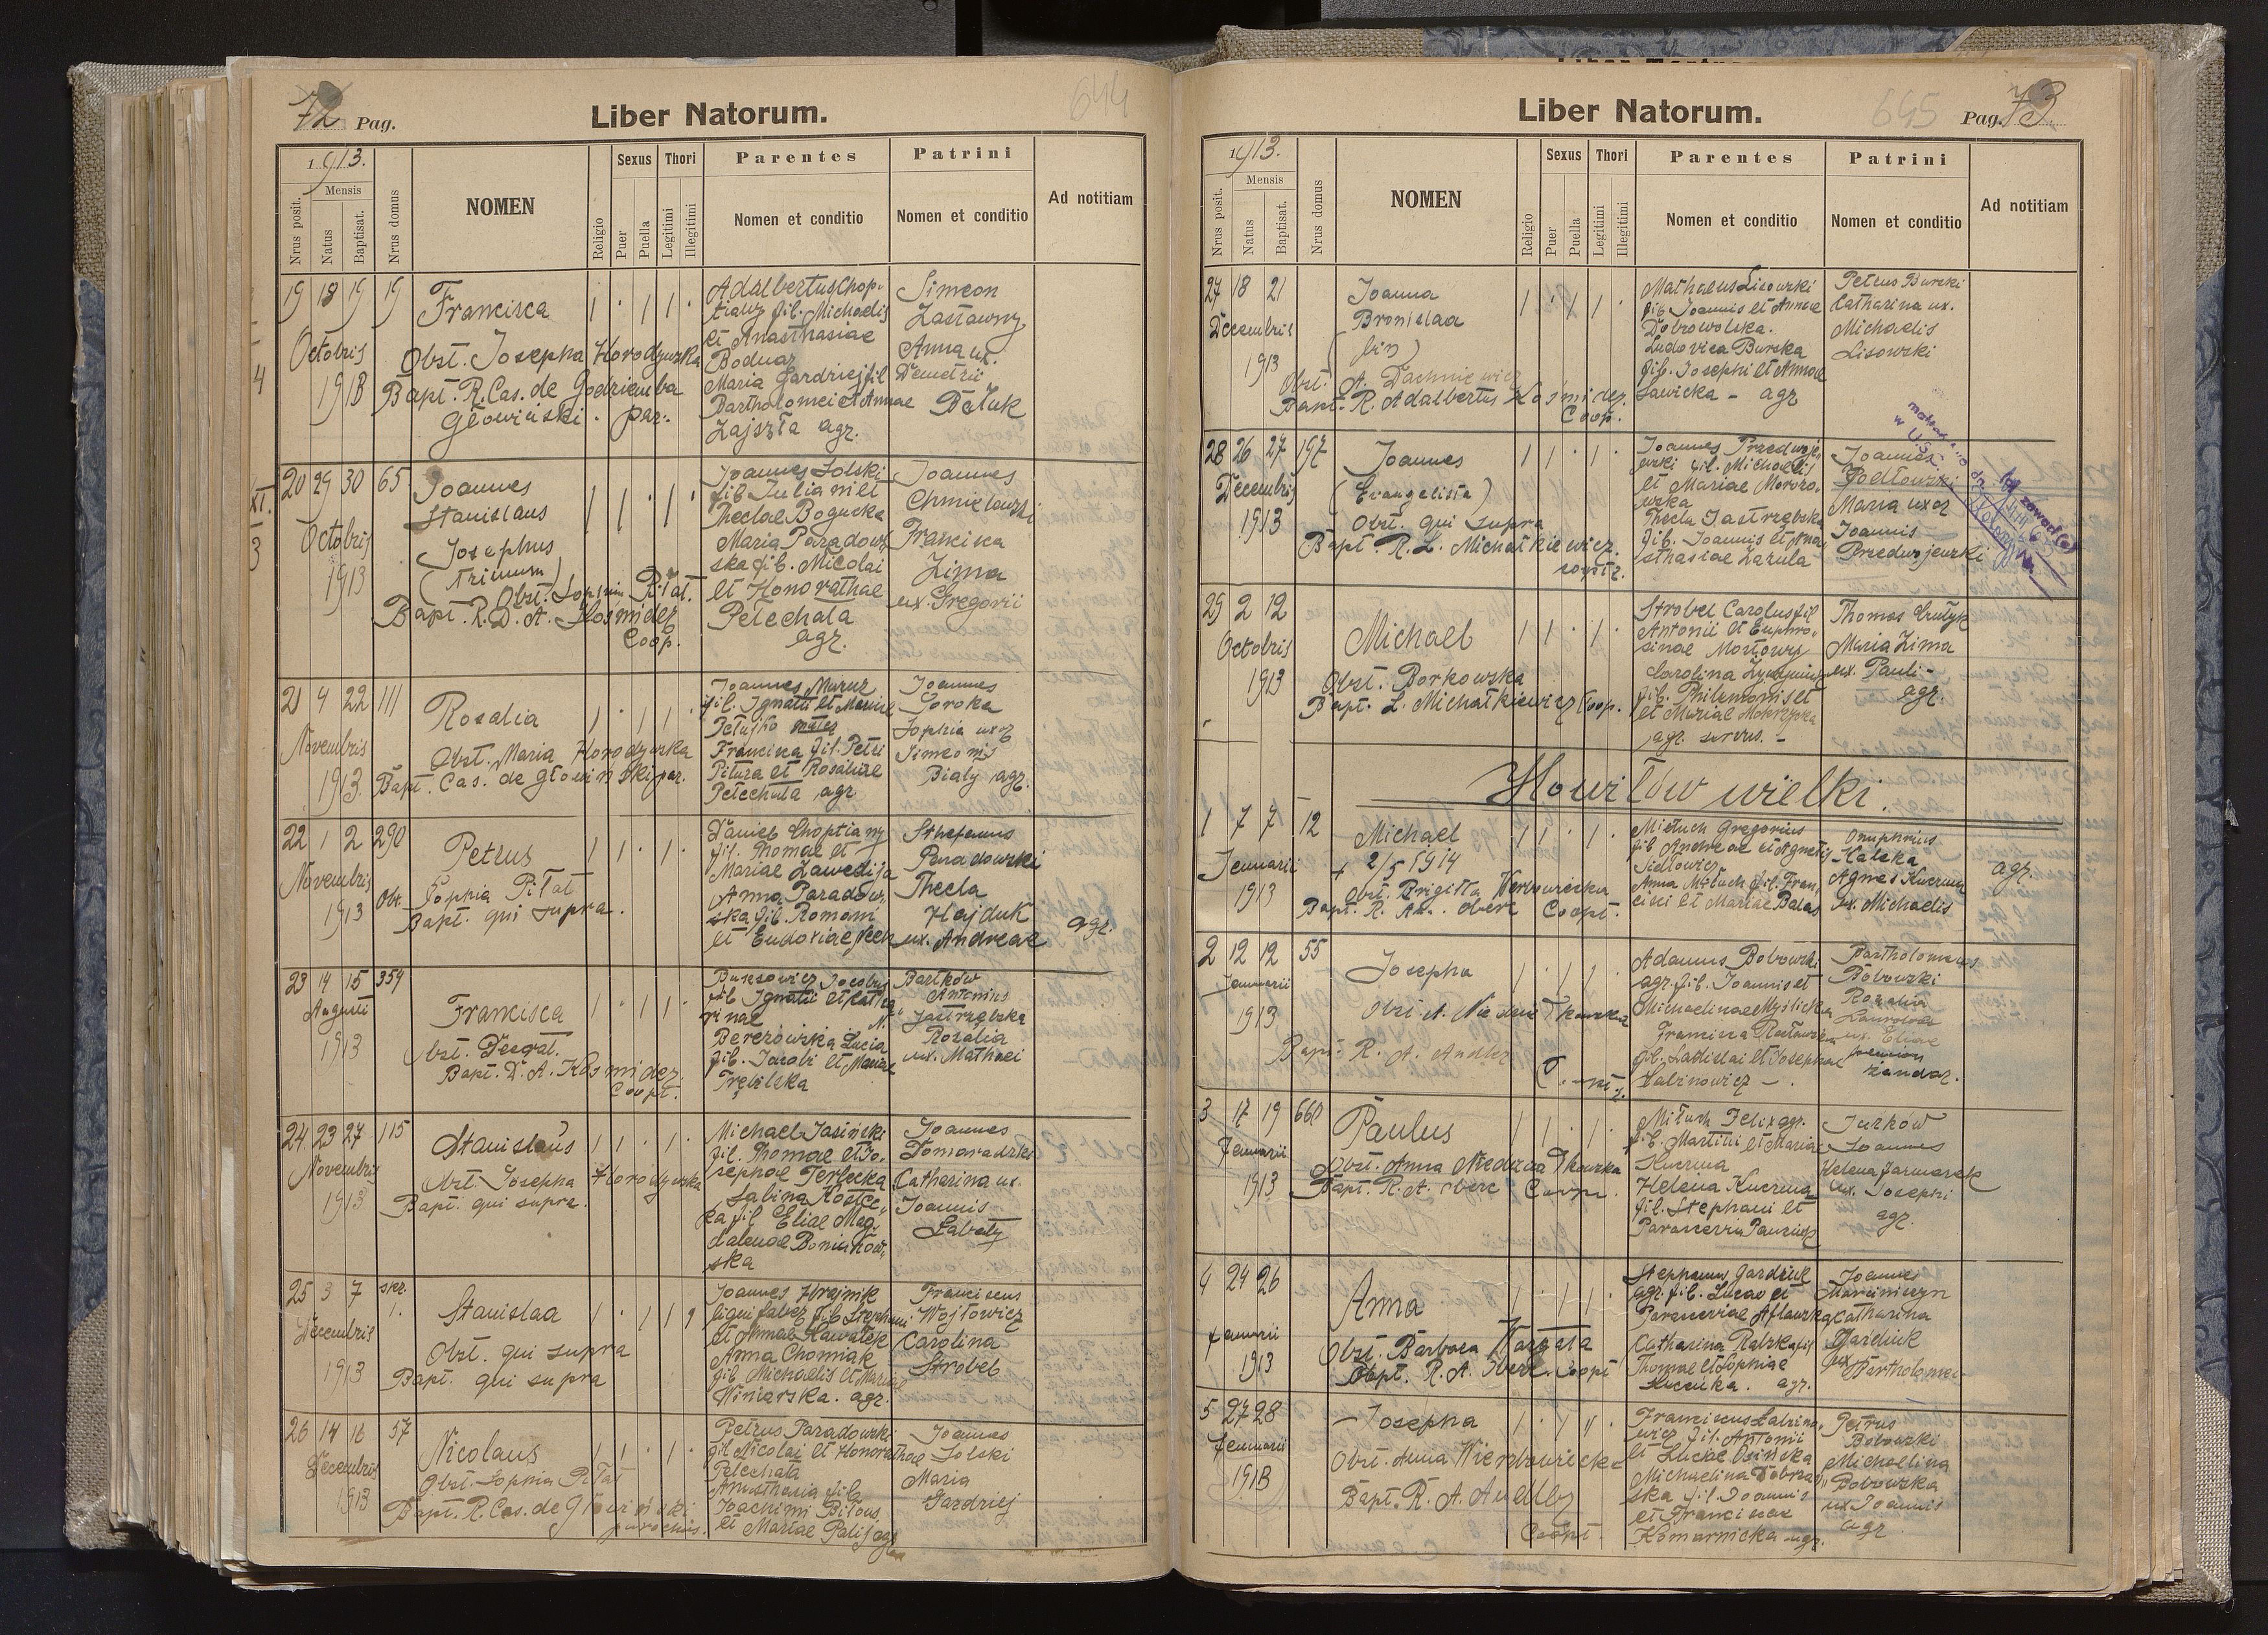 72 Pag.
Liber Natorum.
644
1913.
Mensis
Nrus posit.
Natus
Baptisat.
Nrus domus
NOMEN
Religio
Sexus
Puer
Puella
Thori
Legitimi
Illegitimi
Parentes
Nomen et conditio
Patrini
Nomen et conditio
Ad notitiam
19 18 19 19
Octobris
1913
Francisca
Obst. Josepha Horodyurka
Bapt. R. Cas. de Godziemba
Głowiński. par.
1 . 1 1 .
Adalbertus Chop-
fil. Michaelis
et Anasthasiae
Bodnar
Maria Gardziej fil
Bartholomei et Annae
Zajszła agr.
Simeon
Zastawny
Anna ux.
Demetrii
Bełuk
4
XI.
3
20 29 30 65
Octobris
1913
Joannes
Stanislaus
Josephus
(trinum)
Obst. Sophia Piłat.
Bapt. R. D. A. Kosmider
Coop.
1 1 . 1 .
Joannes Solski
fil Juliani et
Theclae Bogucka
Maria Paradow
ska fil. Nicolai
et Honorathae
Pełechata
agr.
Joannes
Chmielowski
Francisca
Zima
ux. Gregorii
21 9 22 111
Novembris
1913.
Rosalia
Obst. Maria Horodyurka
Bapt. Cas. de Głowiński par.
1 . 1 1 .
Joannes Maruz
fil. Ignatii et Mariae
Francisca fil. Petri
Pitura et Rosaliae
Pełechata agr
Joannes
Soroka
Sophia uxor
Simeonis
Biały agr.
22 1 2 290
Novembris
1913
Petrus
Obst. Sophia Piłat
Bapt. qui supra.
1 1 . 1 .
Daniel Choptiany
fil. Thomae et
Mariae Zawedija
Anna Paradow
ska fil. Romani
et Eudoxiae
Sthefanus
Paradowski
Thecla
Hajduk
ux. Andreae
agr.
23 14 15 354
Augusti
1913
Francisca
Obst. Deegat.
Bapt. D. A. Kosmider.
Coopt.
1 . 1 1 .
Jacobus
fil Ignatii et Catha
rinae
Berezowska Lucia
fil. Jacobi et Mariae
Trębilska
Bartków
Antonius
Jastrzębska
Rosalia
ux. Mathaei
24 23 27 115
Novembris
1913
Stanislaus
Obst. Josepha Horodyurka
Bapt. qui supra.
1 1 . 1 .
Michael Jasiński
fil. Thomae et Jo-
sephae Terlecka
Sabina Kostec
ka fil. Eliae Mag
dalenae
ska
Joannes
Domaradzki
Catharina ux.
Joannis
Łabaty
25 3 7
Decembris
1913
Stanislaa
Obst. qui supra
Bapt. qui supra
1 . 1 1
Joannes Krajnik
lignifaber fil. Stephani
et Annae Kawałek
Anna Chomiak
fil Michaelis et Mariae
Winiarska. agr.
Franciscus
Wojtowicz
Carolina
Strobel
26 14 16 57
Decembris
1913
Nicolaus
Obst. Sophia Piłat
Bapt. R. Cas. de Głowiński
parochus.
1 1 . 1 .
Petrus Paradowski
fil Nicolai et Honorathae
Pełechata
Anasthasia fil
Joachimi Bilous
et Mariae Palij agr
Joannes
Solski
Maria
Gardziej
Liber Natorum.
645
Pag. 73.
1913.
Mensis
Nrus posit.
Natus
Baptisat.
Nrus domus
NOMEN
Religio
Sexus
Puer
Puella
Thori
Legitimi
Illegitimi
Parentes
Nomen et conditio
Patrini
Nomen et conditio
Ad notitiam
27 18 21
Decembris
1913
Joanna
Bronislaa
(bin)
Obst. A. Dachniewicz
Bapt. R. Adalbertus Kośmider.
Coop.
1 . 1 1 .
Mathaeus Lisowski
fil Joannis et Annae
Dobrowolska.
Ludovica Burska
fil. Josephi et Annae
Sawicka - agr
Petrus Burski
Catharina ux.
Michaelis
Lisowski
28 26 27 197
Decembris
1913
Joannes
(Evangelista)
Obst. qui supra
Bapt. R. L. Michałkiewicz.
1 1 . 1 .
Joannes Przedwoje-
wski fil. Michaelis
et Mariae Moroso-
wska
Thecla Jastrzębska
fil. Joannis et Ana
sthasiae Zazula
Joannes
Podłowski
Maria uxor
Joannis
Przedwojewski
w U.S.
zawarł(a)
29 2 12
Octobris
1913
Michael
Obst. Borkowska
Bapt. L. Michałkiewicz Coop.
1 1 . 1 .
Strobel Carolus fil
Antonii et Euphro-
sinae
Carolina
fil. Philemonis et
et Mariae Mokrzycka
agr. servus. -
Thomas
Maria Zima
ux. Pauli -
agr.
Howiłów wielki.
1 7 7 12
Januarii
1913
Michael
+ 2/5 1914
Obst. Brigitta
Bapt. R. An. Oberc Coopt.
1 1 . 1 .
Mietuch Gregorius
fil Andreae et Agnetis
Sidłowicz
Anna Mituch fil. Fran
cisci et Mariae Balas
Onuphrius
Halska
Agnes Kuczma
ux. Michaelis
agr.
2 12 12 55
Januarii
1913
Josepha
Obst. A. Niedźwi Tkowska
Bapt. R. A. Andler
1 . 1 1 .
Adamus Bobowski
agr. fil. Joannis et
Michaelinae Myślicka
Francisca
fil. Ladislai et Josephae
Łabinowicz -.
Bartholomaeus
Bobowski
Rozalia
ux. Eliae
żandar.
3 17 19 660
Januarii
1913
Paulus
Obst. Anna Niedźwia Tkowska
Bapt. R. A. Oberc Coopt.
1 1 . 1 .
Mituch Felix agr.
fil. Martini et Maria
Kuczma
Helena Kuczma
fil. Stephani et
Parascevia
Jurków
Joannes
Helena Jarmasek
ux. Josephi
agr.
4 24 26
Januarii
1913
Anna
Obst. Barbara Kargata
Bapt. R. A. Oberc. Coopt
1 . 1 1 .
Stephanus Gardziuk
agr. fil. Lucae et
Parasceviae
Catharina Ratzka fil
Thomae et Sophiae
agr.
Joannes
Marciniszyn
Catharina
Gardziuk
ux. Bartholomei
5 27 28
Januarii
1913
Josepha
Obst. Anna
Bapt. R. A. Andller
Coopt.
1 . 1
Franciscus Łabino-
wicz fil. Antonii
et Luciae Osińska
Michaelina Dobrzań
ska fil. Joannis
et Franciscae
Komarnicka agr.
Petrus
Bobowski
Michaelina
Bobowska
ux. Joannis
agr